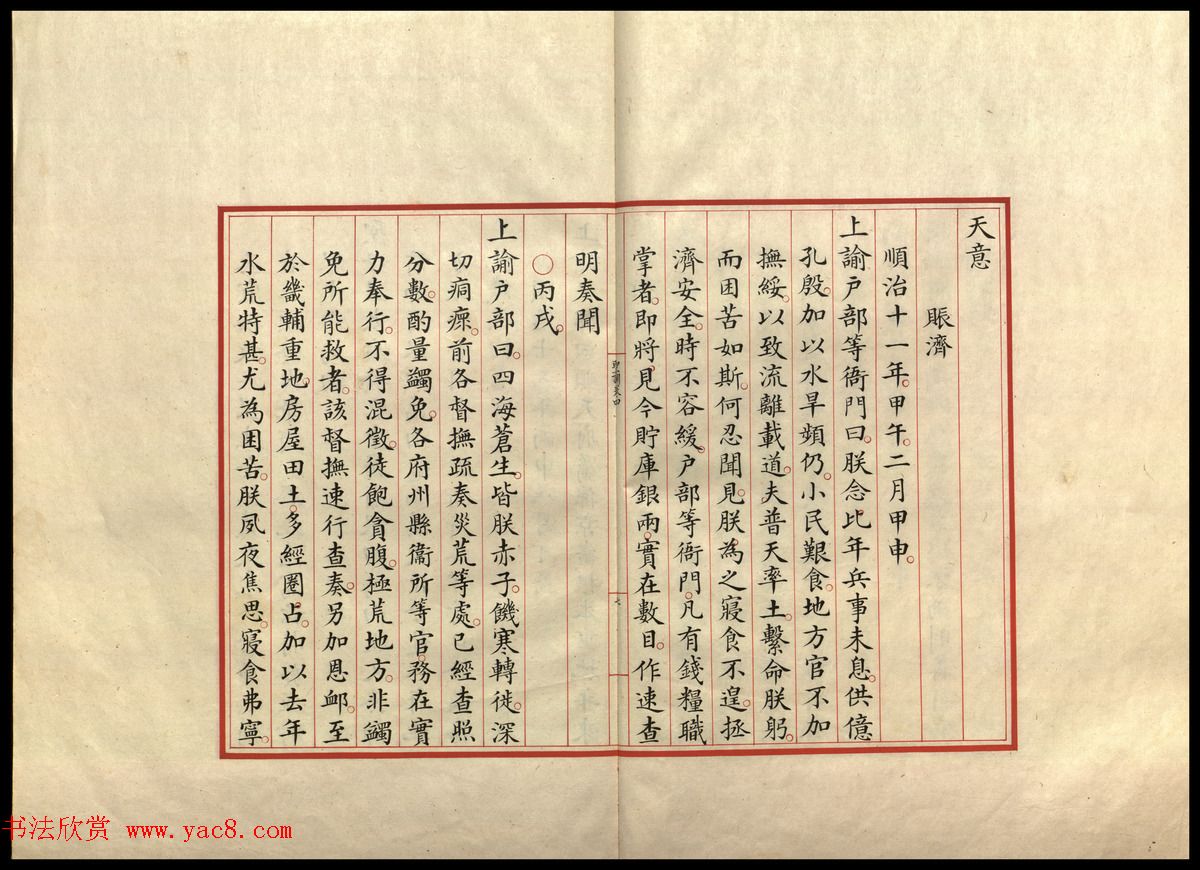 天意
賑濟
順治十一年。甲午。二月甲申。
上諭戶部等衙門曰。朕念比年兵事未息。供億
孔殷。加以水旱頻仍。小民艱食。地方官不加
撫綏。以致流離載道。夫普天率土。繫命朕躬。
而困苦如斯。何忍聞見。朕為之寢食不遑。拯
濟安全。時不容緩。戶部等衙門。凡有錢糧職
掌者。即將見今貯庫銀兩。實在數目。作速查
明奏聞
○丙戌。
上諭戶部曰。四海蒼生。皆朕赤子。饑寒轉徙。深
切痌瘝。前各督撫疏奏災荒等處。已經查照
分數。酌量蠲免。各府州縣衞所等官。務在實
力奉行。不得混徵。徒飽貪腹。極荒地方。非蠲
免所能救者。該督撫速行查奏。另加恩卹。至
於畿輔重地。房屋田土。多經圈占。加以去年
水荒特甚。尤為困苦。朕夙夜焦思。寢食弗寧。
七
书法欣赏 www.yac8.com